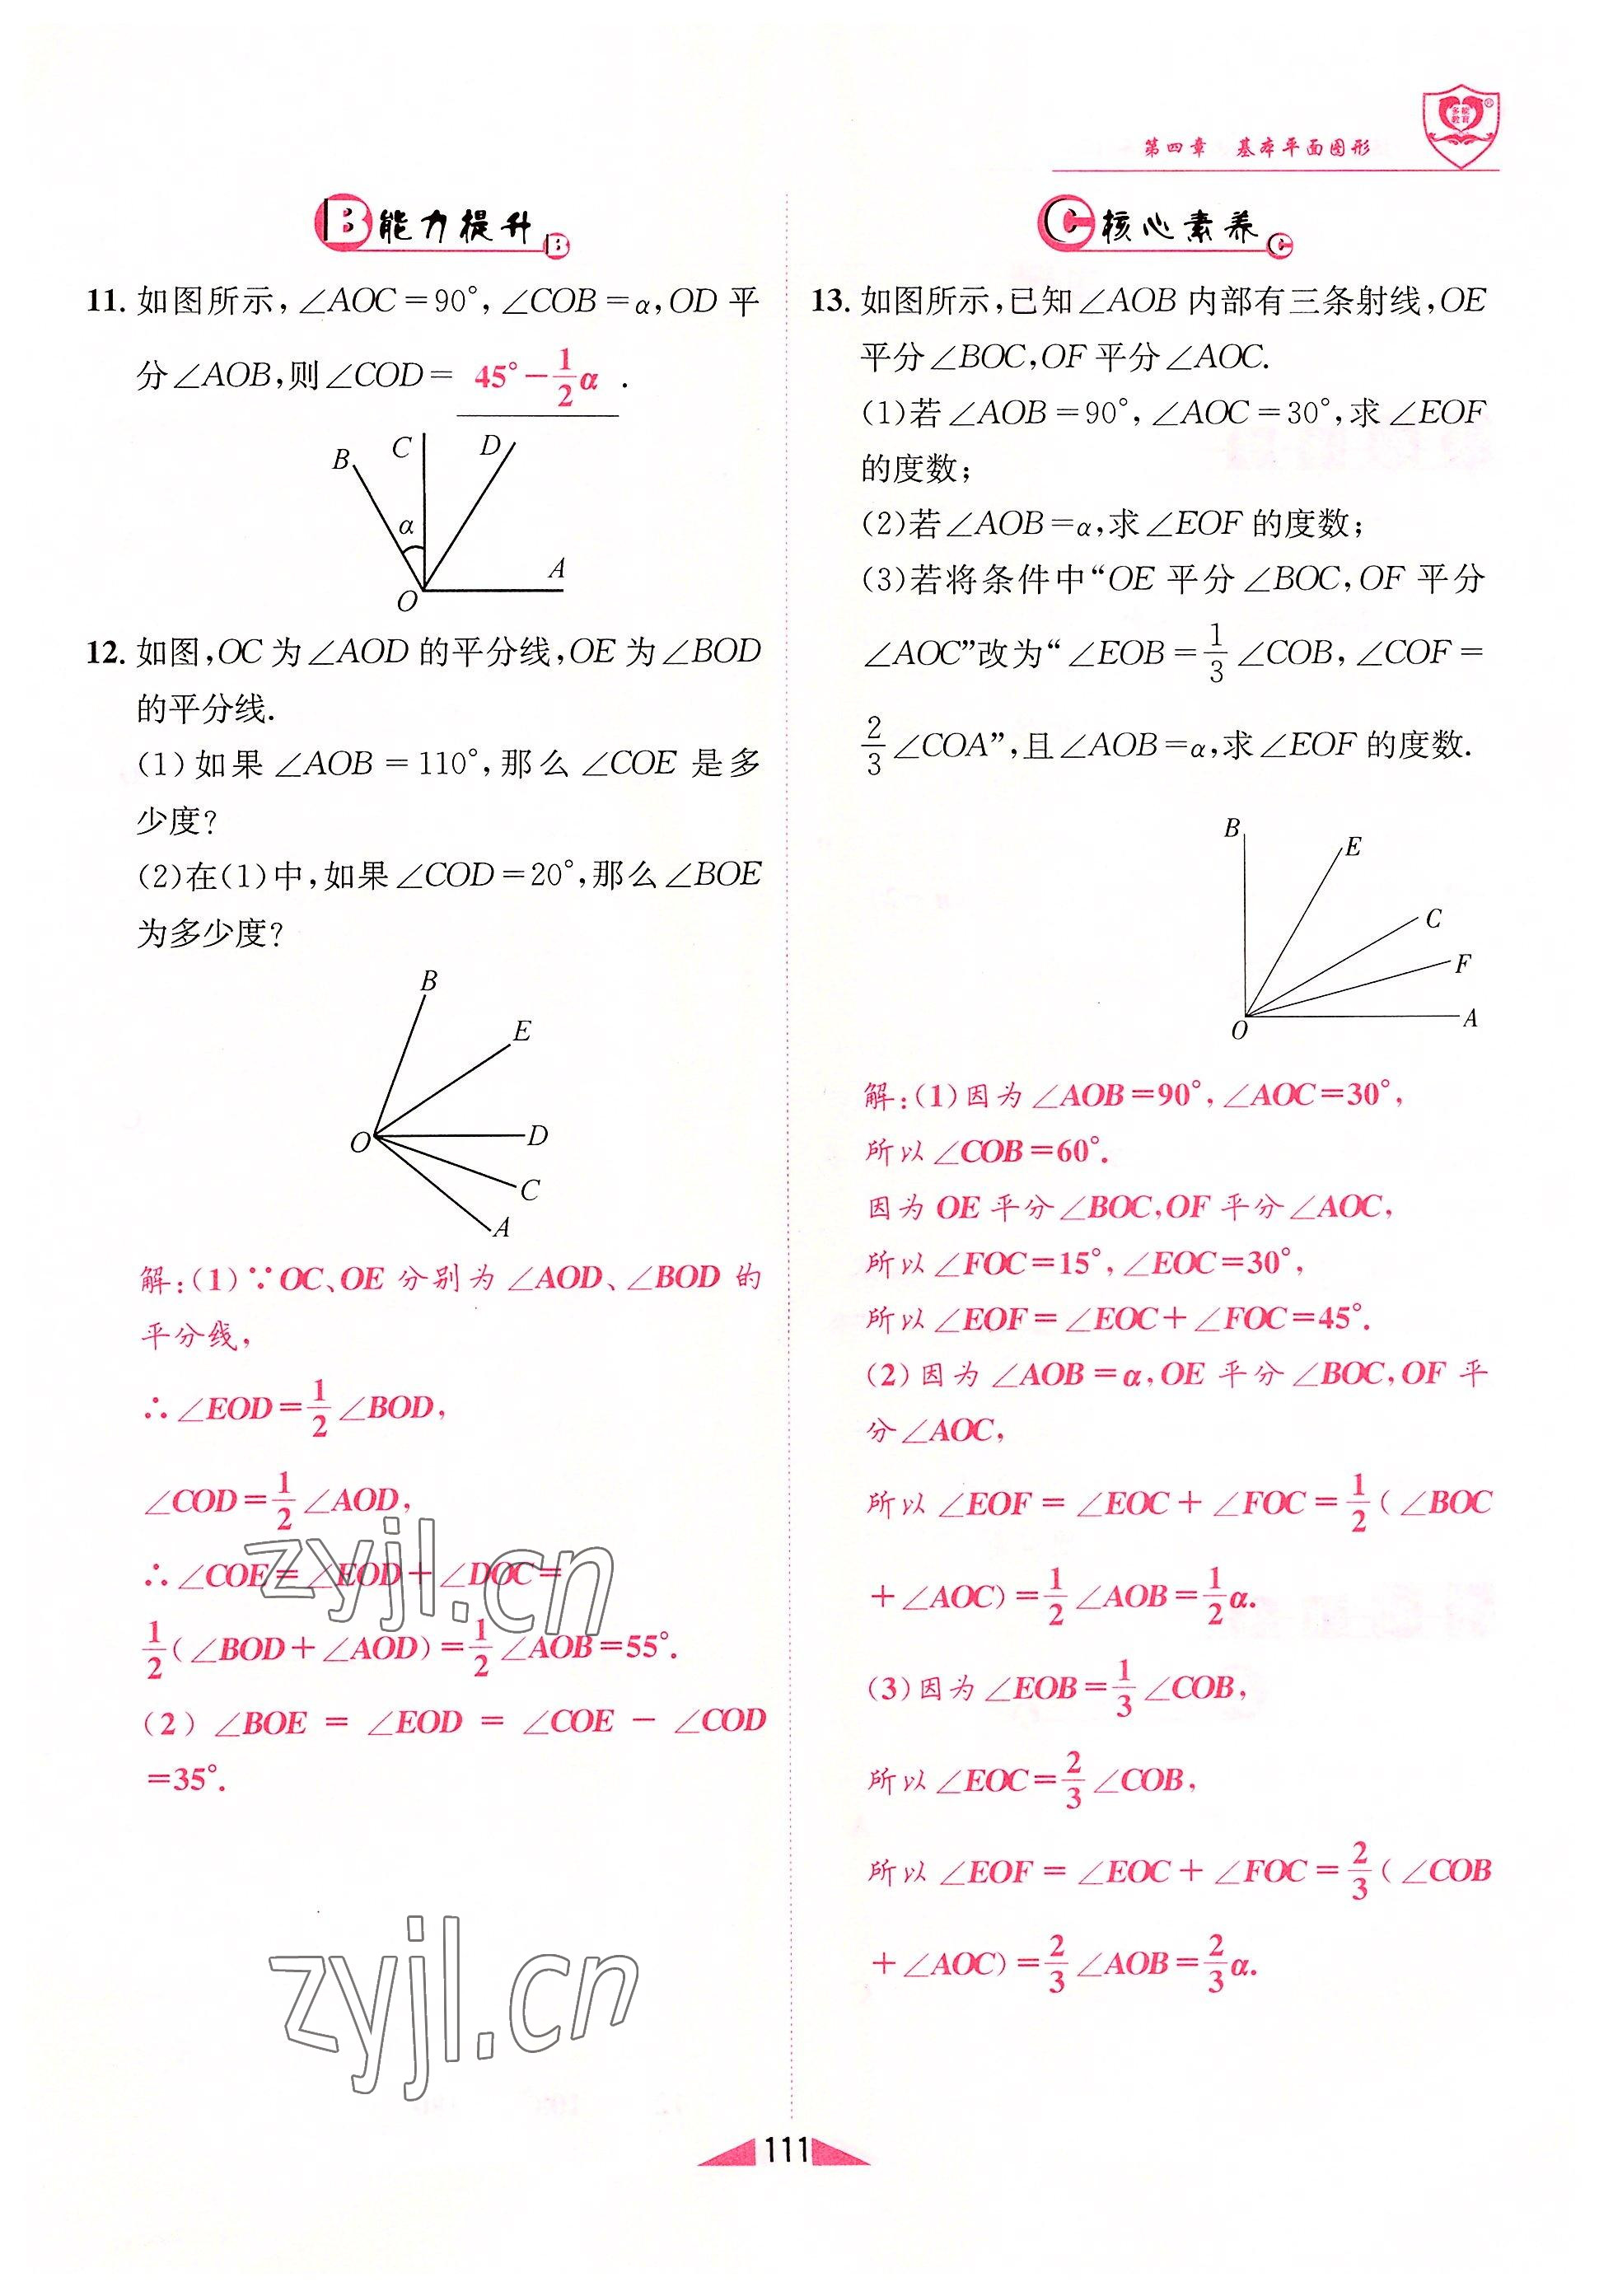 第四章 基本平面图形
多能
教育
B 能力提升 B
11. 如图所示,∠AOC=90°,∠COB=α,OD 平
分∠AOB,则∠COD= 45°-1/2α .
B C D
α
A
O
12. 如图,OC 为∠AOD 的平分线,OE 为∠BOD
的平分线.
(1)如果∠AOB=110°,那么∠COE 是多
少度?
(2)在(1)中,如果∠COD=20°,那么∠BOE
为多少度?
B
E
O D
C
A
解:(1)∵OC、OE 分别为∠AOD、∠BOD 的
平分线,
∴∠EOD=1/2∠BOD,
∠COD=1/2∠AOD,
∴∠COE=∠EOD+∠DOC=
1/2(∠BOD+∠AOD)=1/2∠AOB=55°.
(2)∠BOE=∠EOD=∠COE-∠COD
=35°.
zyjl.cn
zyjl.cn
C 核心素养 C
13. 如图所示,已知∠AOB 内部有三条射线,OE
平分∠BOC,OF 平分∠AOC.
(1)若∠AOB=90°,∠AOC=30°,求∠EOF
的度数;
(2)若∠AOB=α,求∠EOF 的度数;
(3)若将条件中“OE 平分∠BOC,OF 平分
∠AOC”改为“∠EOB=1/3∠COB,∠COF=
2/3∠COA”,且∠AOB=α,求∠EOF 的度数.
B
E
C
F
O A
解:(1)因为∠AOB=90°,∠AOC=30°,
所以∠COB=60°.
因为 OE 平分∠BOC,OF 平分∠AOC,
所以∠FOC=15°,∠EOC=30°,
所以∠EOF=∠EOC+∠FOC=45°.
(2)因为∠AOB=α,OE 平分∠BOC,OF 平
分∠AOC,
所以∠EOF=∠EOC+∠FOC=1/2(∠BOC
+∠AOC)=1/2∠AOB=1/2α.
(3)因为∠EOB=1/3∠COB,
所以∠EOC=2/3∠COB,
所以∠EOF=∠EOC+∠FOC=2/3(∠COB
+∠AOC)=2/3∠AOB=2/3α.
111